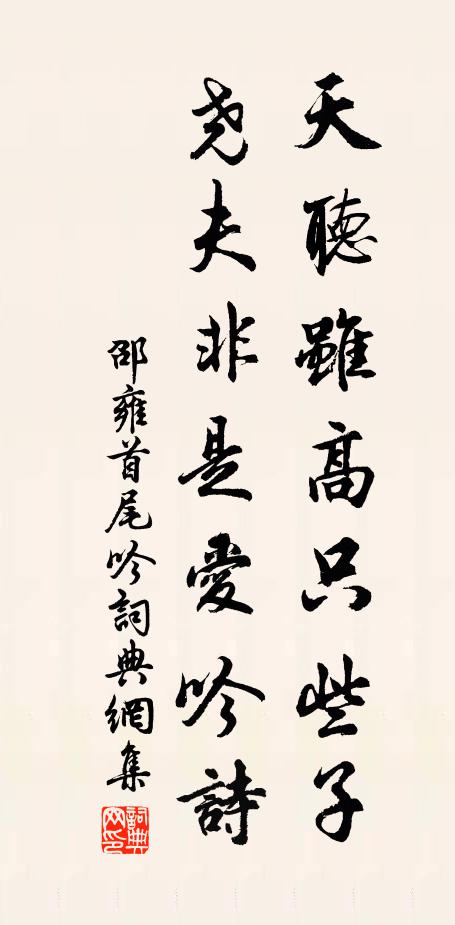 天聽雖高只些子
堯夫非是愛吟詩
邵雍首尾吟詞典網集
詞典網印